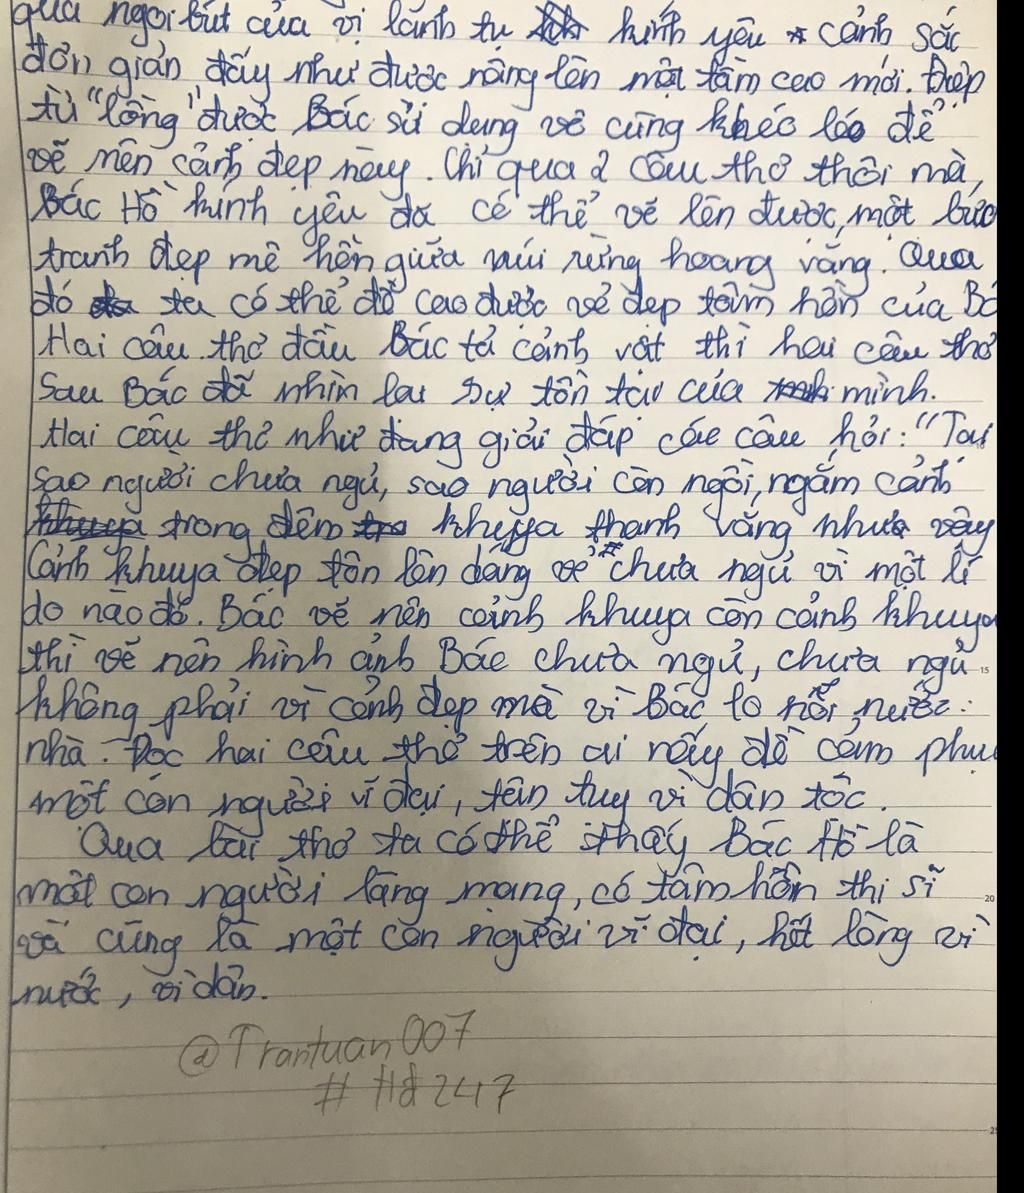 qua ngòi bút của vị lãnh tụ kính yêu cảnh sắc
đơn giản đấy như được nâng lên một tầm cao mới. Điệp
từ "lồng" được Bác sử dụng vô cùng khéo léo để
vẽ nên cảnh đẹp này. Chỉ qua 2 câu thơ thôi mà,
Bác Hồ kính yêu đã có thể vẽ lên được một bức
tranh đẹp mê hồn giữa núi rừng hoang vắng. Qua
đó ta có thể đề cao được vẻ đẹp tâm hồn của Bá
Hai câu thơ đầu Bác tả cảnh vật thì hai câu thơ
sau Bác đã nhìn lại sự tồn tại của mình.
Hai câu thơ như đang giải đáp các câu hỏi: "Tại
sao người chưa ngủ, sao người còn ngồi, ngắm cảnh
trong đêm khuya thanh vắng như vậy
Cảnh khuya đẹp tôn lên dáng vẻ chưa ngủ vì một lí
do nào đó. Bác vẽ nên cảnh khuya còn cảnh khuya
thì vẽ nên hình ảnh Bác chưa ngủ, chưa ngủ
không phải vì cảnh đẹp mà vì Bác lo nỗi nước
nhà. Đọc hai câu thơ trên ai nấy đề cảm phục
một con người vĩ đại, tận tụy vì dân tộc.
Qua bài thơ ta có thể thấy Bác Hồ là
một con người lãng mạng, có tâm hồn thi sĩ
và cũng là một con người vĩ đại, hết lòng vì
nước, vì dân.
@Trantuan007
# Hđ247